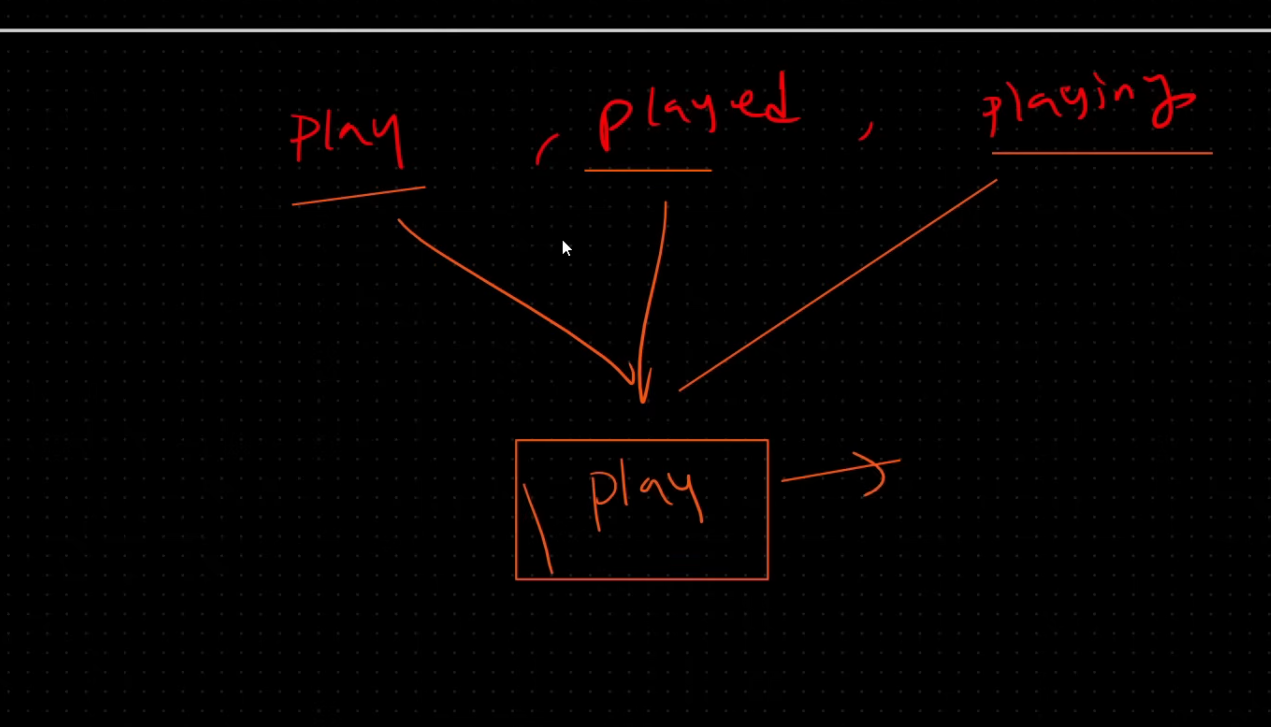 play , played , playing
play